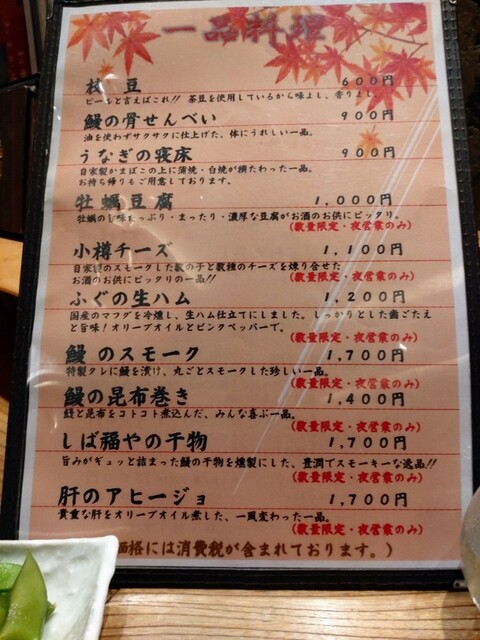 一品料理
枝豆 600円
ビールと言えばこれ!! 茶豆を使用しているから味よし、香りよし。
鰻の骨せんべい 900円
油を使わずサクサクに仕上げた、体にうれしい一品。
うなぎの寝床 900円
自家製かまぼこの上に蒲焼・白焼が横たわった一品。
お持ち帰りもご用意しております。
牡蠣豆腐 1,000円
牡蠣の旨味たっぷり・まったり・濃厚な豆腐がお酒のお供にピッタリ。
(数量限定・夜営業のみ)
小樽チーズ 1,100円
自家製のスモークした数の子と数種のチーズを練り合せた
お酒のお供にピッタリの一品!!
(数量限定・夜営業のみ)
ふぐの生ハム 1,200円
国産のマフグを冷燻し、生ハム仕立てにしました。しっかりとした歯ごたえ
と旨味!オリーブオイルとピンクペッパーで。
(数量限定・夜営業のみ)
鰻のスモーク 1,700円
特製タレに鰻を漬け、丸ごとスモークした珍しい一品。
(数量限定・夜営業のみ)
鰻の昆布巻き 1,400円
鰻と昆布をコトコト煮込んだ、みんな喜ぶ一品。
(数量限定・夜営業のみ)
しば福やの干物 1,700円
旨みがギュッと詰まった鰻の干物を燻製にした、豊潤でスモーキーな逸品!!
(数量限定・夜営業のみ)
肝のアヒージョ 1,700円
貴重な肝をオリーブオイル煮した、一風変わった一品。
(数量限定・夜営業のみ)
価格には消費税が含まれております。)